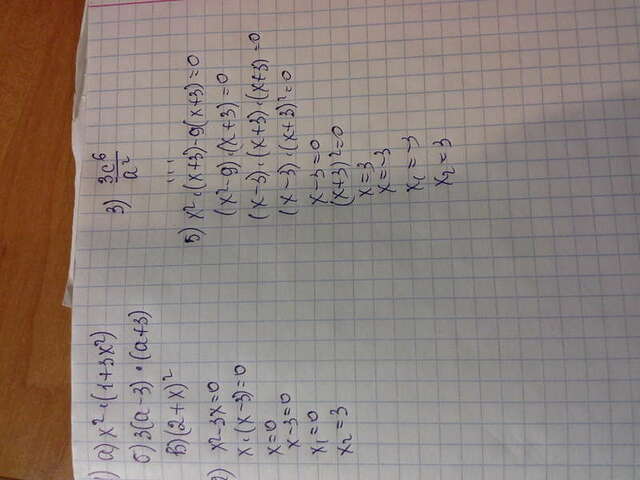 1) а) x² · (1+3x²)
б) 3(a-3) · (a+3)
в) (2+x)²
2) x²-3x=0
x · (x-3)=0
x=0
x-3=0
x₁=0
x₂=3
3) 3c⁶/a²
...
5) x² · (x+3)-9(x+3)=0
(x²-9) · (x+3)=0
(x-3) · (x+3) · (x+3)=0
(x-3) · (x+3)²=0
x-3=0
(x+3)²=0
x=3
x=-3
x₁=-3
x₂=3